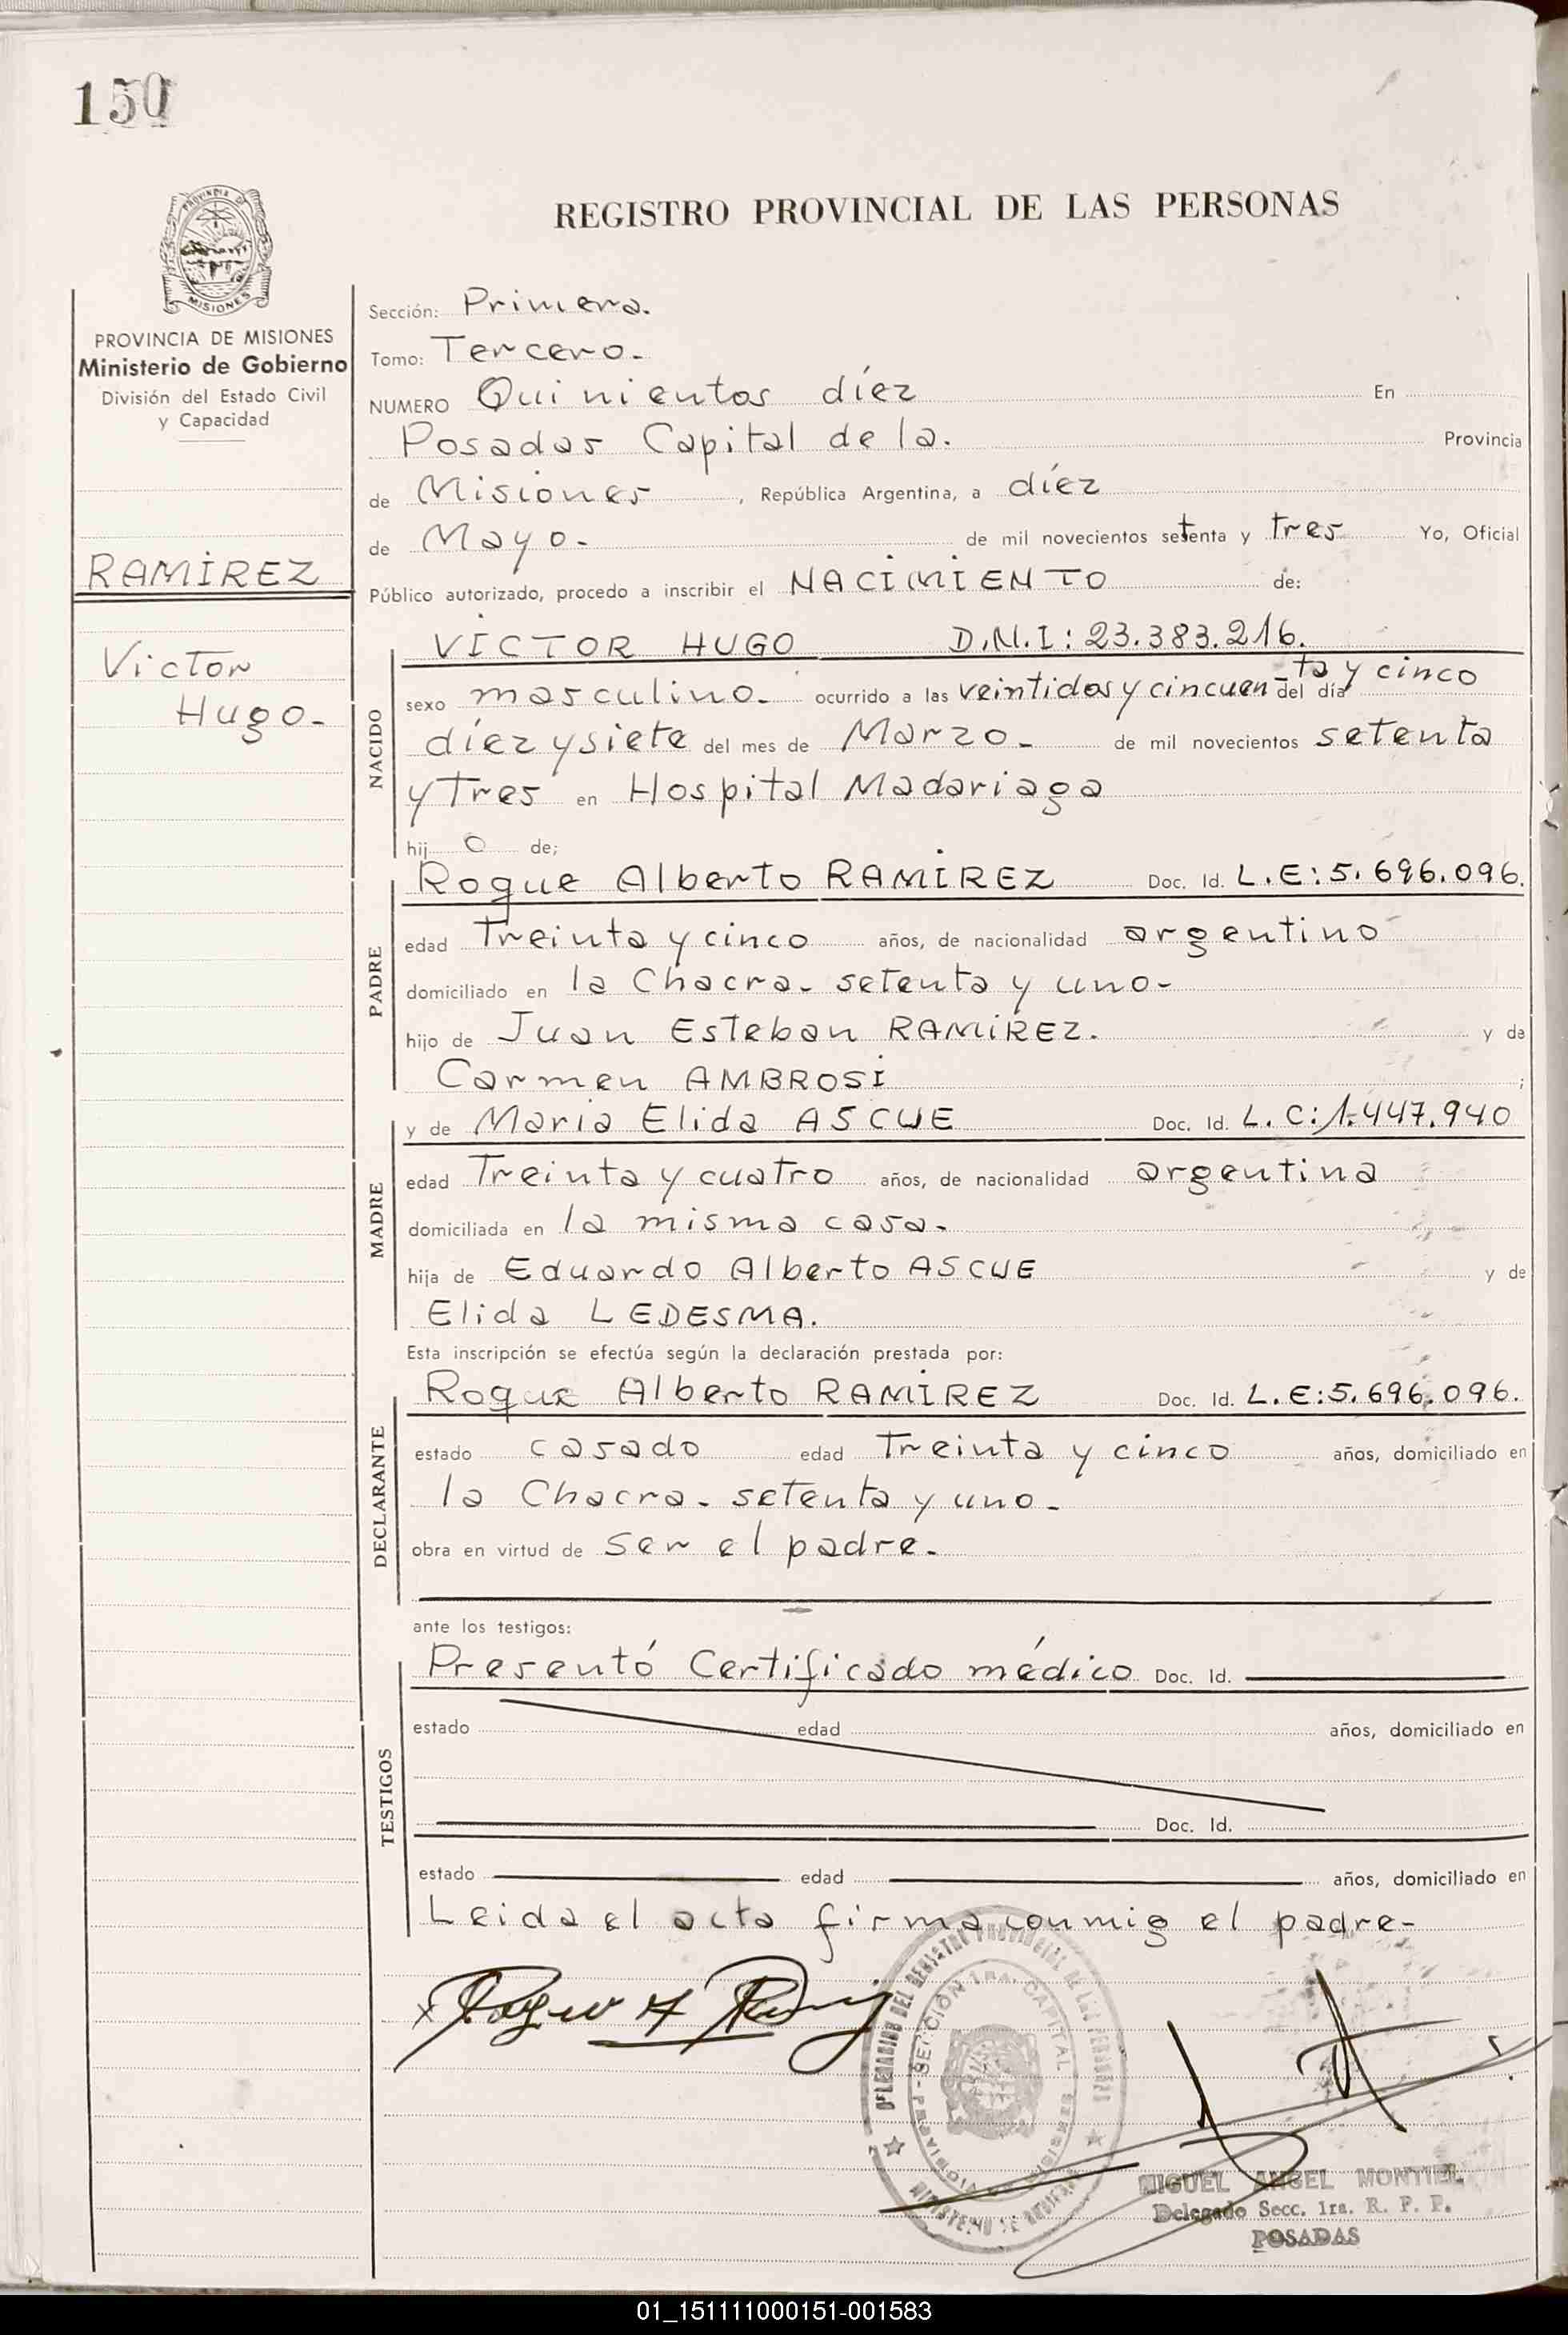 150
REGISTRO PROVINCIAL DE LAS PERSONAS
PROVINCIA DE MISIONES
Ministerio de Gobierno
División del Estado Civil
y Capacidad
RAMIREZ
Victor
Hugo-
Sección: Primera.
Tomo: Tercero-
NUMERO Quinientos díez En
Posadas Capital de la. Provincia
de Misiones, República Argentina, a díez
de Mayo- de mil novecientos setenta y tres Yo, Oficial
Público autorizado, procedo a inscribir el NACIMIENTO de:
NACIDO
VICTOR HUGO D.N.I: 23.383.216.
sexo masculino- ocurrido a las veintidos y cincuen-ta y cinco del día
díez y siete del mes de Marzo- de mil novecientos setenta
y Tres en Hospital Madariaga
hij o de;
PADRE
Roque Alberto RAMIREZ Doc. Id. L.E: 5.696.096.
edad Treinta y cinco años, de nacionalidad argentino
domiciliado en la Chacra- setenta y uno-
hijo de Juan Esteban RAMIREZ. y de
Carmen AMBROSI ;
MADRE
y de Maria Elida ASCUE Doc. Id. L.C: 1.447.940
edad Treinta y cuatro años, de nacionalidad argentina
domiciliada en la misma casa-
hija de Eduardo Alberto ASCUE y de
Elida LEDESMA.
Esta inscripción se efectúa según la declaración prestada por:
DECLARANTE
Roque Alberto RAMIREZ Doc. Id. L.E: 5.696.096.
estado casado edad Treinta y cinco años, domiciliado en
la Chacra- setenta y uno-
obra en virtud de ser el padre-
ante los testigos:
TESTIGOS
Presentó Certificado médico Doc. Id.
estado edad años, domiciliado en
Doc. Id.
estado edad años, domiciliado en
Leida el acta firma conmig el padre-
MIGUEL ANGEL MONTIEL
Delegado Secc. 1ra. R. P. P.
POSADAS
01_151111000151-001583